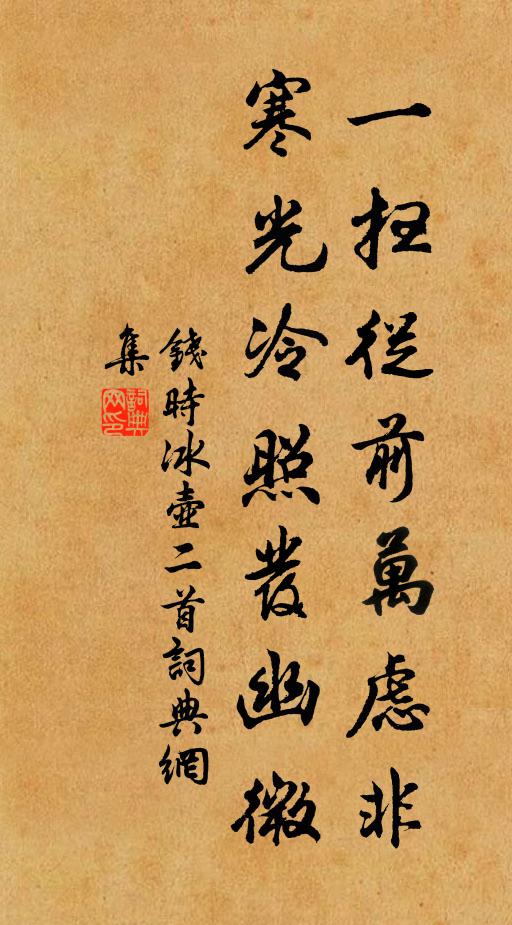 一掃從前萬慮非
寒光冷照發幽微
錢時冰壺二首詞典網
集
詞典
网印